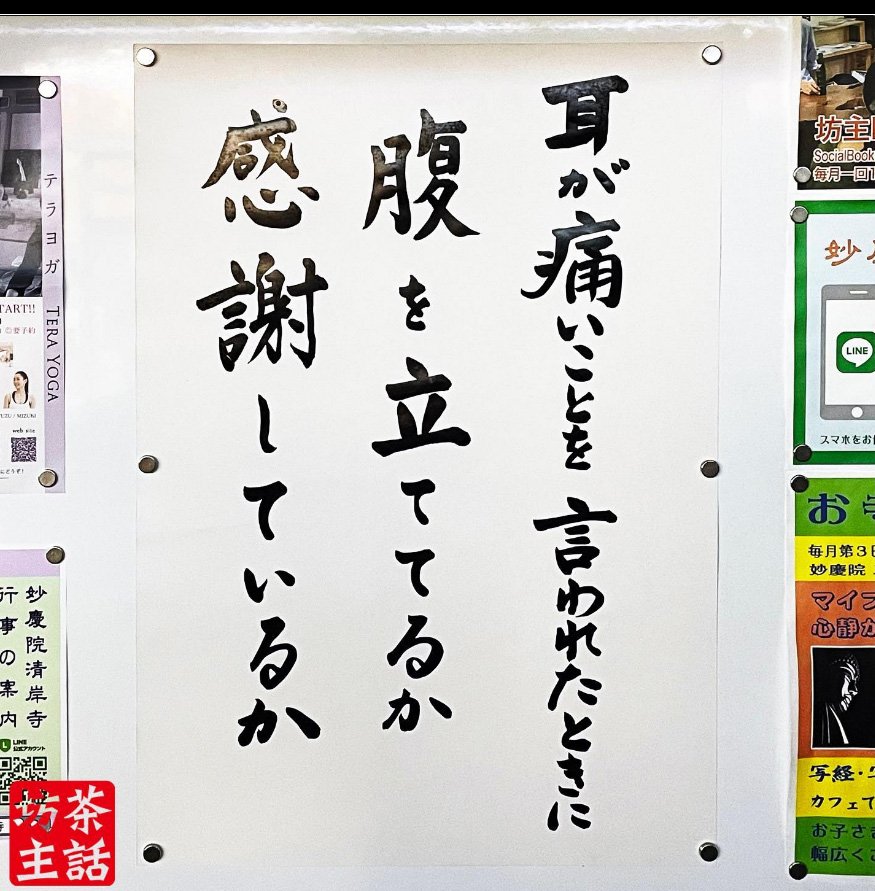 耳が痛いことを言われたときに
腹を立ててるか
感謝しているか
テラヨガ TERA YOGA
START!!
web site
妙慶院清岸寺
行事の案内
LINE
公式アカウント
坊主
SocialBook
毎月一回
妙
LINE
スマホをお
お
毎月第3
妙慶院
マイ
心静か
写経・
カフェで
お子さ
幅広く
茶話
坊主